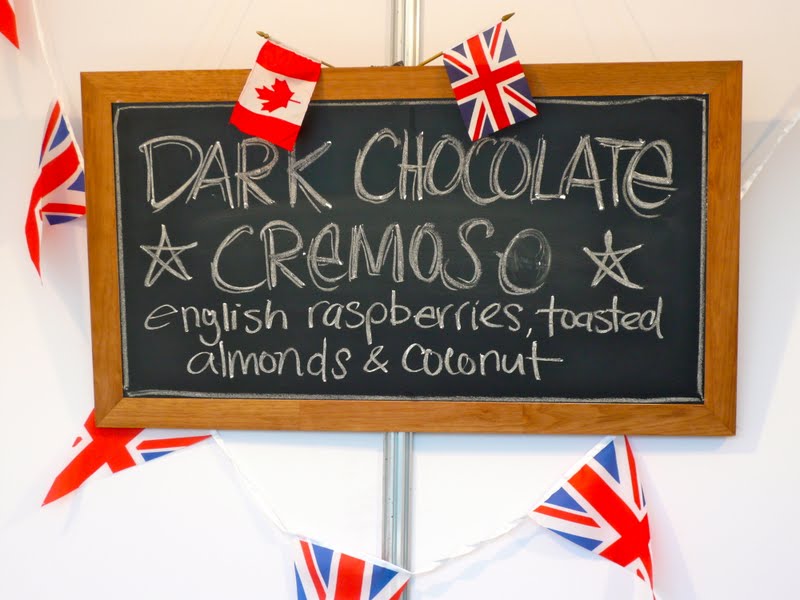 DARK CHOCOLATE
CREMOSO
english raspberries, toasted
almonds & coconut